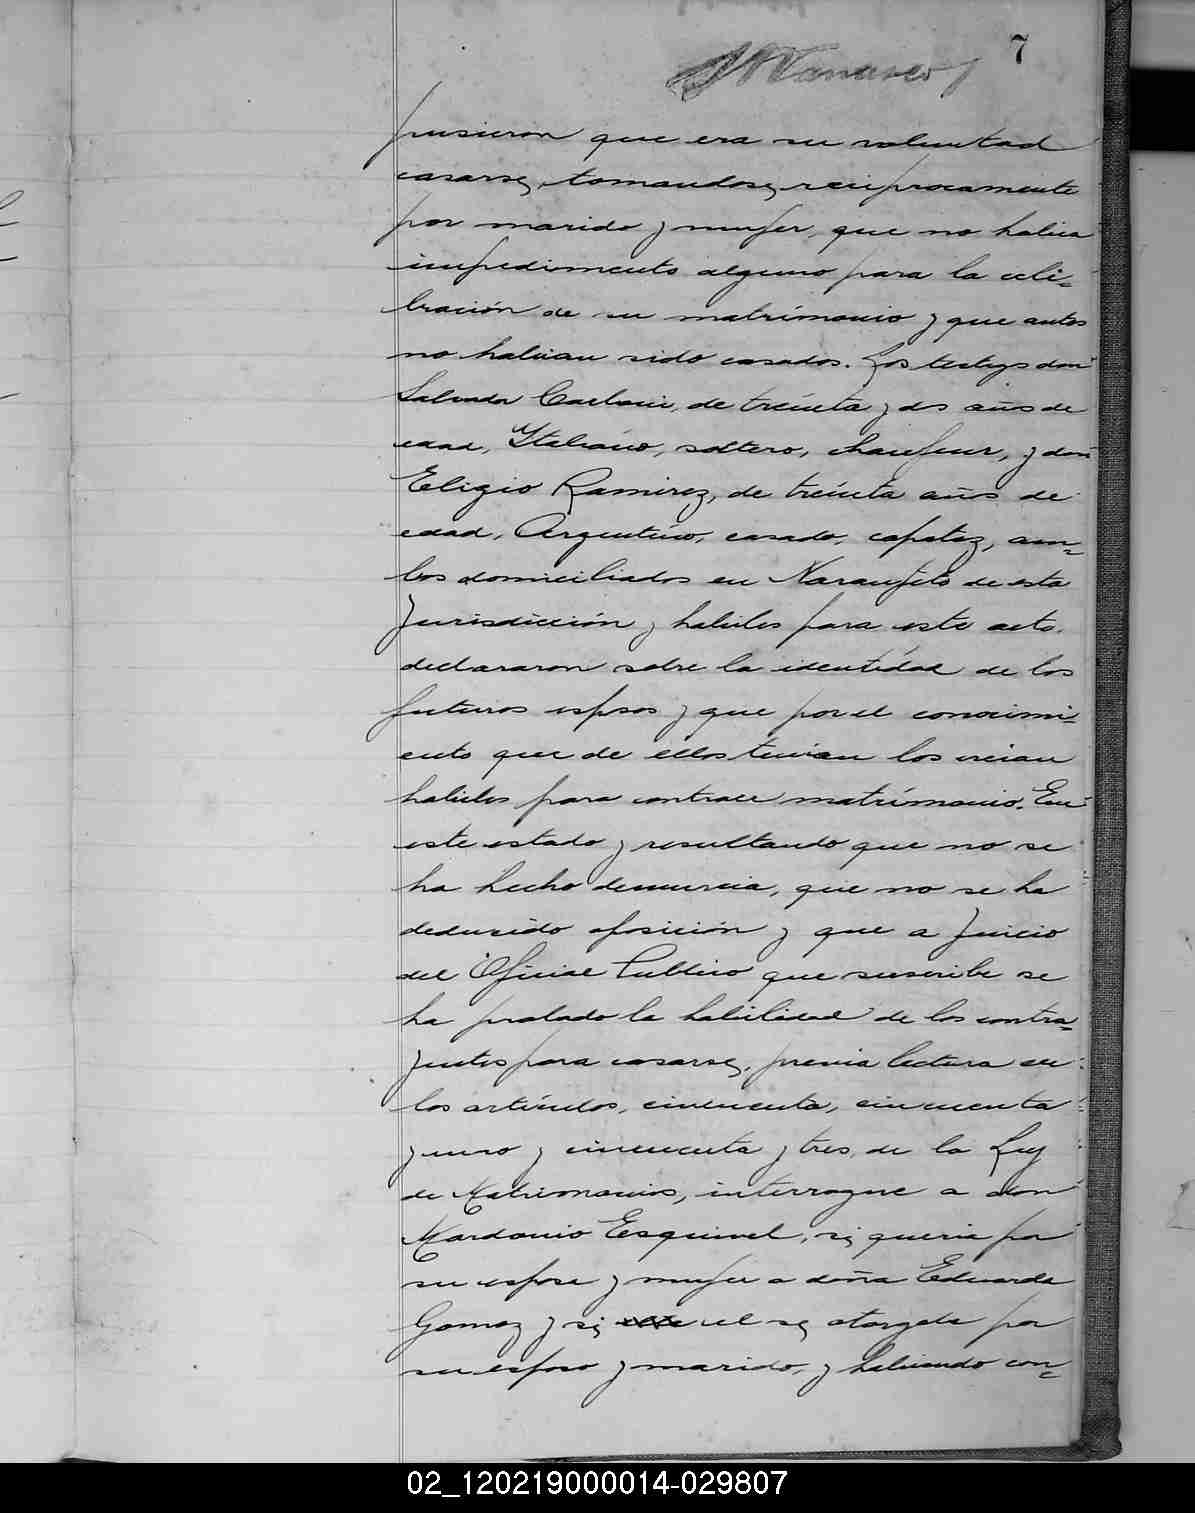 7
pusieron que era su voluntad
casarse, tomandose, reciprocamente
por marido y mujer, que no habia
impedimento alguno para la cele-
bración de su matrimonio y que antes
no habian sido casados. Los testigos don
Salvador, de treinta y dos años de
edad, Italiano, soltero, chaufeur, y don
Eligio Ramirez, de treinta años de
edad, Argentino, casado, capataz, am-
bos domiciliados en Naranjito de esta
Jurisdicción y habiles para este acto,
declararon sobre la identidad de los
futuros esposos y que por el conocimi-
ento que de ellos tenian los creian
habiles para contraer matrimonio. En
este estado y resultando que no se
ha hecho denuncia, que no se ha
deducido oposición y que a Juicio
del Oficial Publico que suscribe se
ha probado la habilidad de los contra-
yentes para casarse, previa lectura de
los artículos, cincuenta, cincuenta
y uno y cincuenta y tres, de la Ley
de Matrimonios, interrogue a don
Mardonio Esquivel, si queria por
su esposa y mujer a doña Eduarda
Gomez y si el se otorgaba por
su esposo y marido, y habiendo con-
02_120219000014-029807